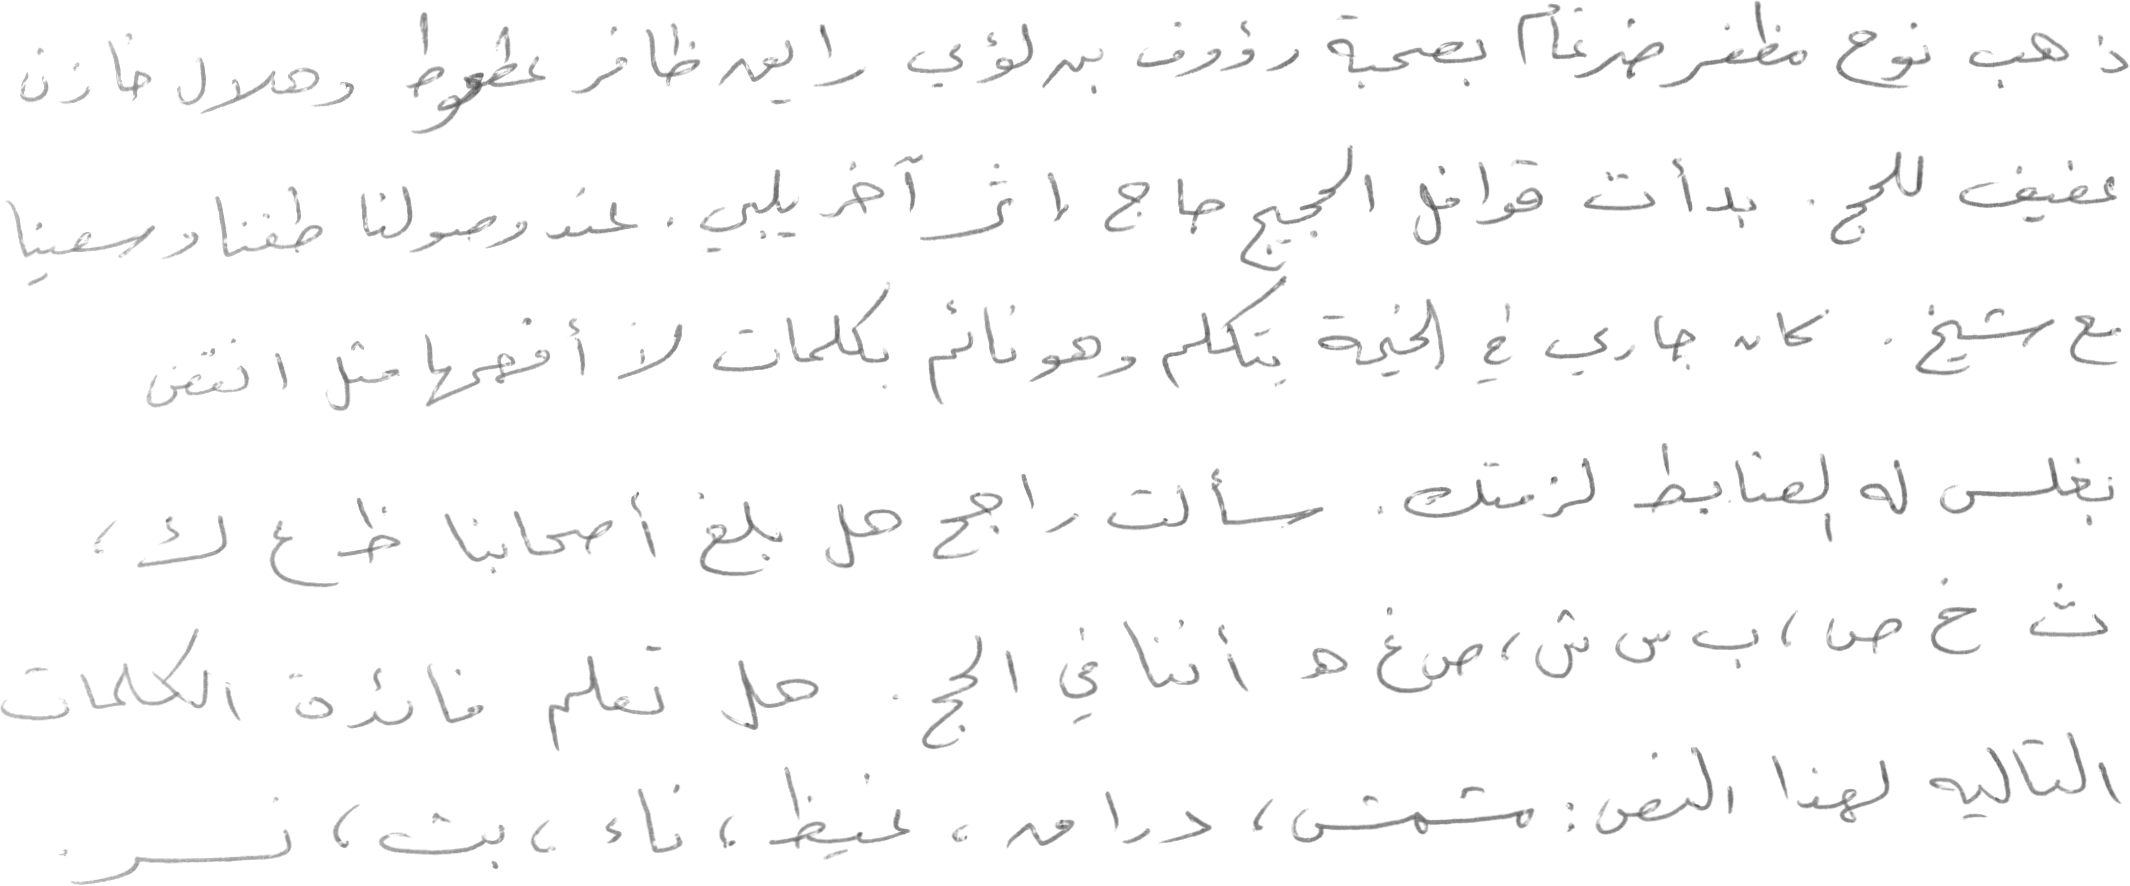 ذهب نوح مظفر ضرغام بصحبة رؤوف بن لؤي رايق ظافر عطعوط وهلال خازن
عفيف للحج. بدأت قوافل الحجيج حاج إثر آخر يلبي. عند وصولنا طفنا وسعينا
مع شيخ. كان جاري في الخيمة يتكلم وهو نائم بكلمات لا أفهمها مثل انتقض
بغلس له الضابط لزمتك. سألت راجح هل بلغ أصحابنا ظ ع ك،
ث خ ص، ب س ش، ض غ ه أننا في الحج. هل تعلم فائدة الكلمات
التالية لهذا النص: مشمش، دراق، غيظ، ناء، بث، نسر.